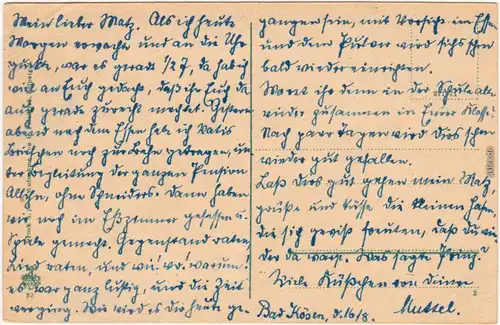 Mein lieber Matz. Als ich heute
Morgen erwachte und an die Uhr
guckte, war es gerade 1/2 7, da hab ich
wie an Euch gedacht, daß ihr Euch da
auf grade zurecht machtet. Gestern
abend nach dem Essen hab ich Vatis
Briefchen noch zur Bahn getragen, un-
ter Begleitung der ganzen Pension
ohne Schneiders. Dann haben
wir noch im Eßzimmer gesessen u.
Spiele gemacht. Gegenstand raten,
Lied raten, und wie! wo! warum!
es war ganz lustig, und die Zeit
verging. Wie wird es Dir heute ge-
gangen sein, mit Vorsicht im Essen
und dem Pulver wird sichs schon
bald wieder einrichten.
Wart ihr denn in der Schule alle
wieder zusammen in Eurer Klasse?
Nach paar Tagen wird Dirs schon
wieder gut gefallen.
Laß Dirs gut gehen mein Matz
grüße und küsse die kleinen haben
die sich gewiß freuten, daß Du wie
der da warst. Was sagte Prinz?
Viele Küßchen von Deiner
Muttel.
Bad Kösen, d. 16/8.